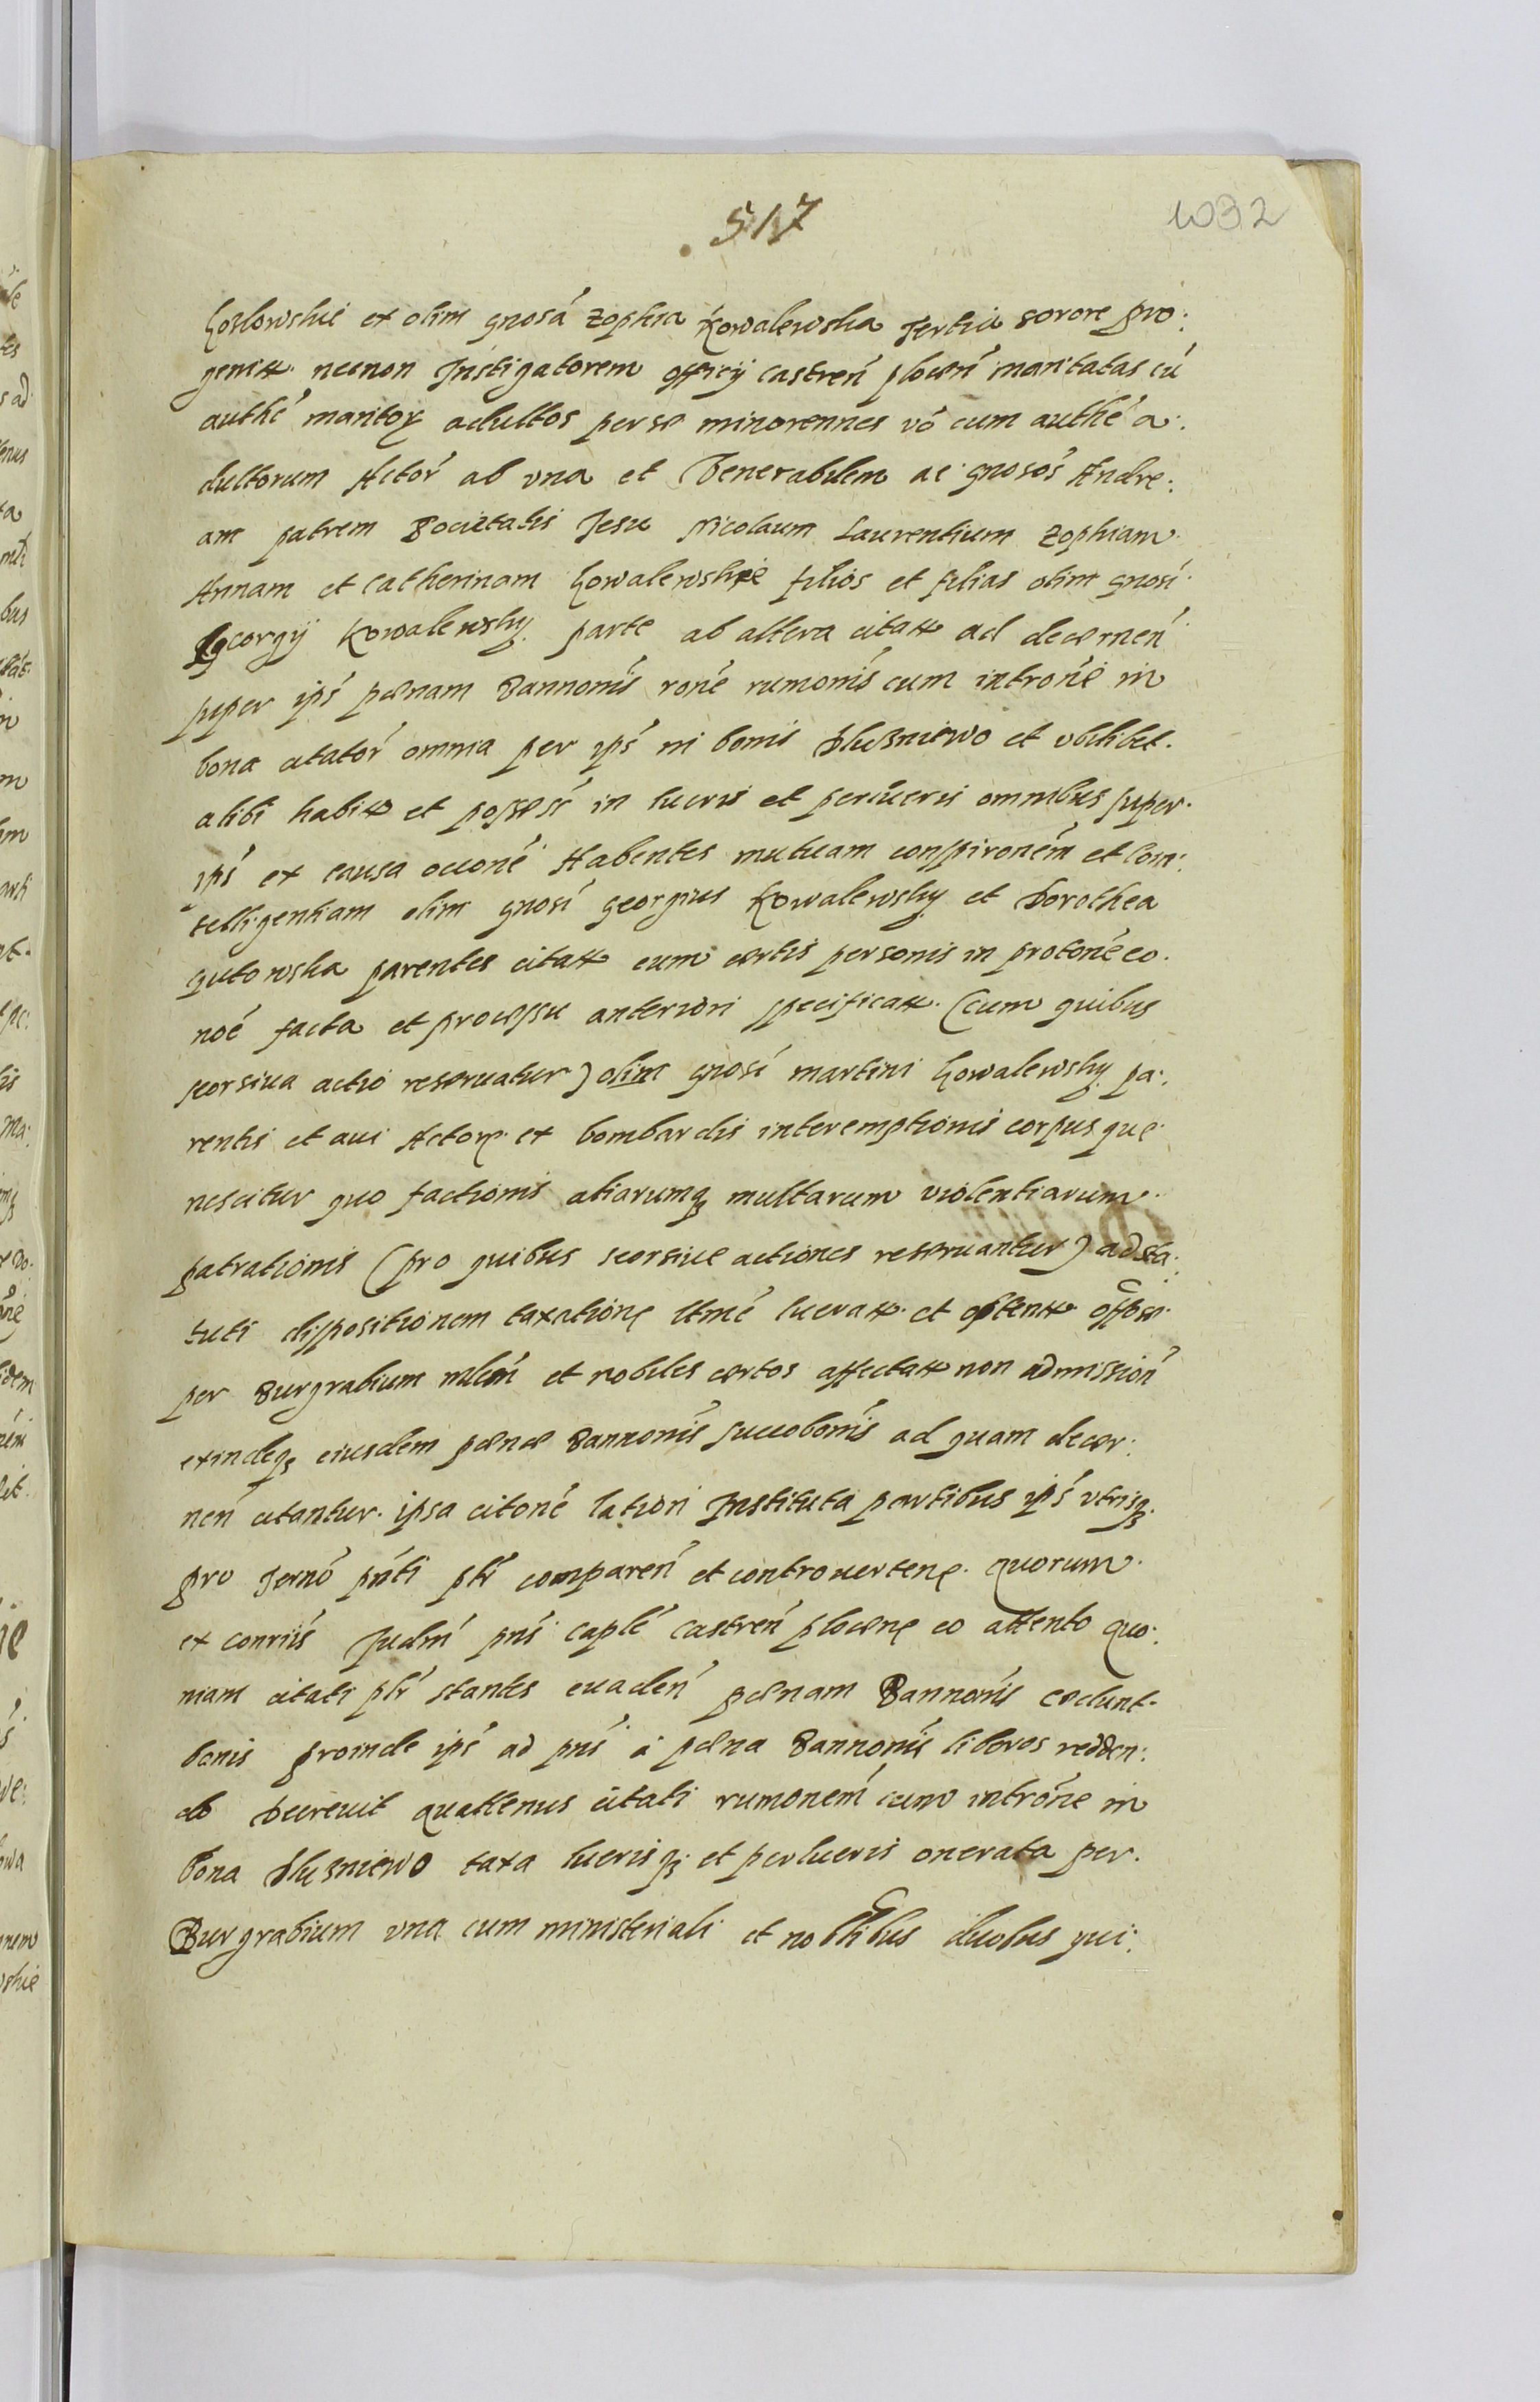 517
1032
Kozlowskie ex olim gnosá Zophia Kowalewska Tertia sorore pro:
genitt. necnon Instigatorem officij castreń płoceń maritatas cú
authé maritoꝝ adultos per se minorennes vó cum authé a:
dultorum Actoŕ ab vna et Venerabilem ac gnosós Andre:
am patrem Societatis Jesu Nicolaum Laurentium Zophiam
Annam et Catherinam Kowalewskie filios et filias olim gnosi
Georgij Kowalewsky parte ab altera citatt ad decerneń
super ipś pœnam Bannonis roné rumonis cum introné in
bona citatoŕ omnia per ipś in bonis Dluzniewo et vbilibet
alibi habitt et possess in lucris et perlucris omnibus super
ipś ex causa ocuoné Habentes mutuam conspironém et Com:
telligentiam olim gnosi Georgius Kowalewsky et Dorothea
Gutowska parentes citatt cum certis personis in protoné eo
noé facta et processu anteriori specificatt. (cum quibus
seorsiua actio reseruatur) olim gnosi Martini Kowalewsky pa:
rentis et aui Actorꝝ ex bombardis interemptionis corpusque
nescitur quo factionis aliarumqꝫ multarum violentiarum
patrationis (pro quibus seorsiue actiones reseruantur) ad sta:
tuti dispositionem taxationę ltmé lucratt et obtentt
per Burgrabium mlém et nobiles certos affectatt non admissioń
exindeqꝫ eiusdem pœnæ Bannonis succobonis ad quam decer:
neń citantur. ipsa citoné latiori Instituta partibus ipś vtrisqꝫ
pro Termó pńti plŕ compareń et controuertenę. Quorum
ex conriis Judm pńs caplé castreń płocenę eo attento quo:
niam citati plŕ stantes euadeń pœnam Bannonis cedunt
bonis proinde ipś ad pńs á pœna Bannonis liberos redden:
do Decreuit quattenus citati rumoném cum introné in
bona Dluzniewo taxa lucrisqꝫ et perlucris onerata per
Burgrabium vna cum ministeriali et nobilibus duobus qui: